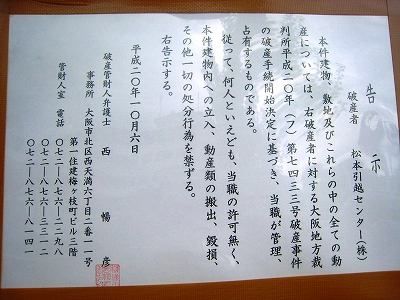 告示
破産者 松本引越センター(株)
本件建物、敷地及びこれらの中の全ての動
産については、右破産者に対する大阪地方裁
判所平成二〇年(フ)第七四三三号破産事件
の破産手続開始決定に基づき、当職が管理、
占有するものである。
従って、何人といえども、当職の許可無く、
本件建物内への立入、動産類の搬出、毀損、
その他一切の処分行為を禁ずる。
右告示する。
平成二〇年一〇月六日
破産管財人弁護士 西 暢彦
事務所 大阪市北区西天満六丁目二番一一号
第一住建梅ヶ枝町ビル三階
管財人室 電話 〇七二―八七六―二二九八
〇七二―八七六―三三一二
〇七二―八七六―八一四一